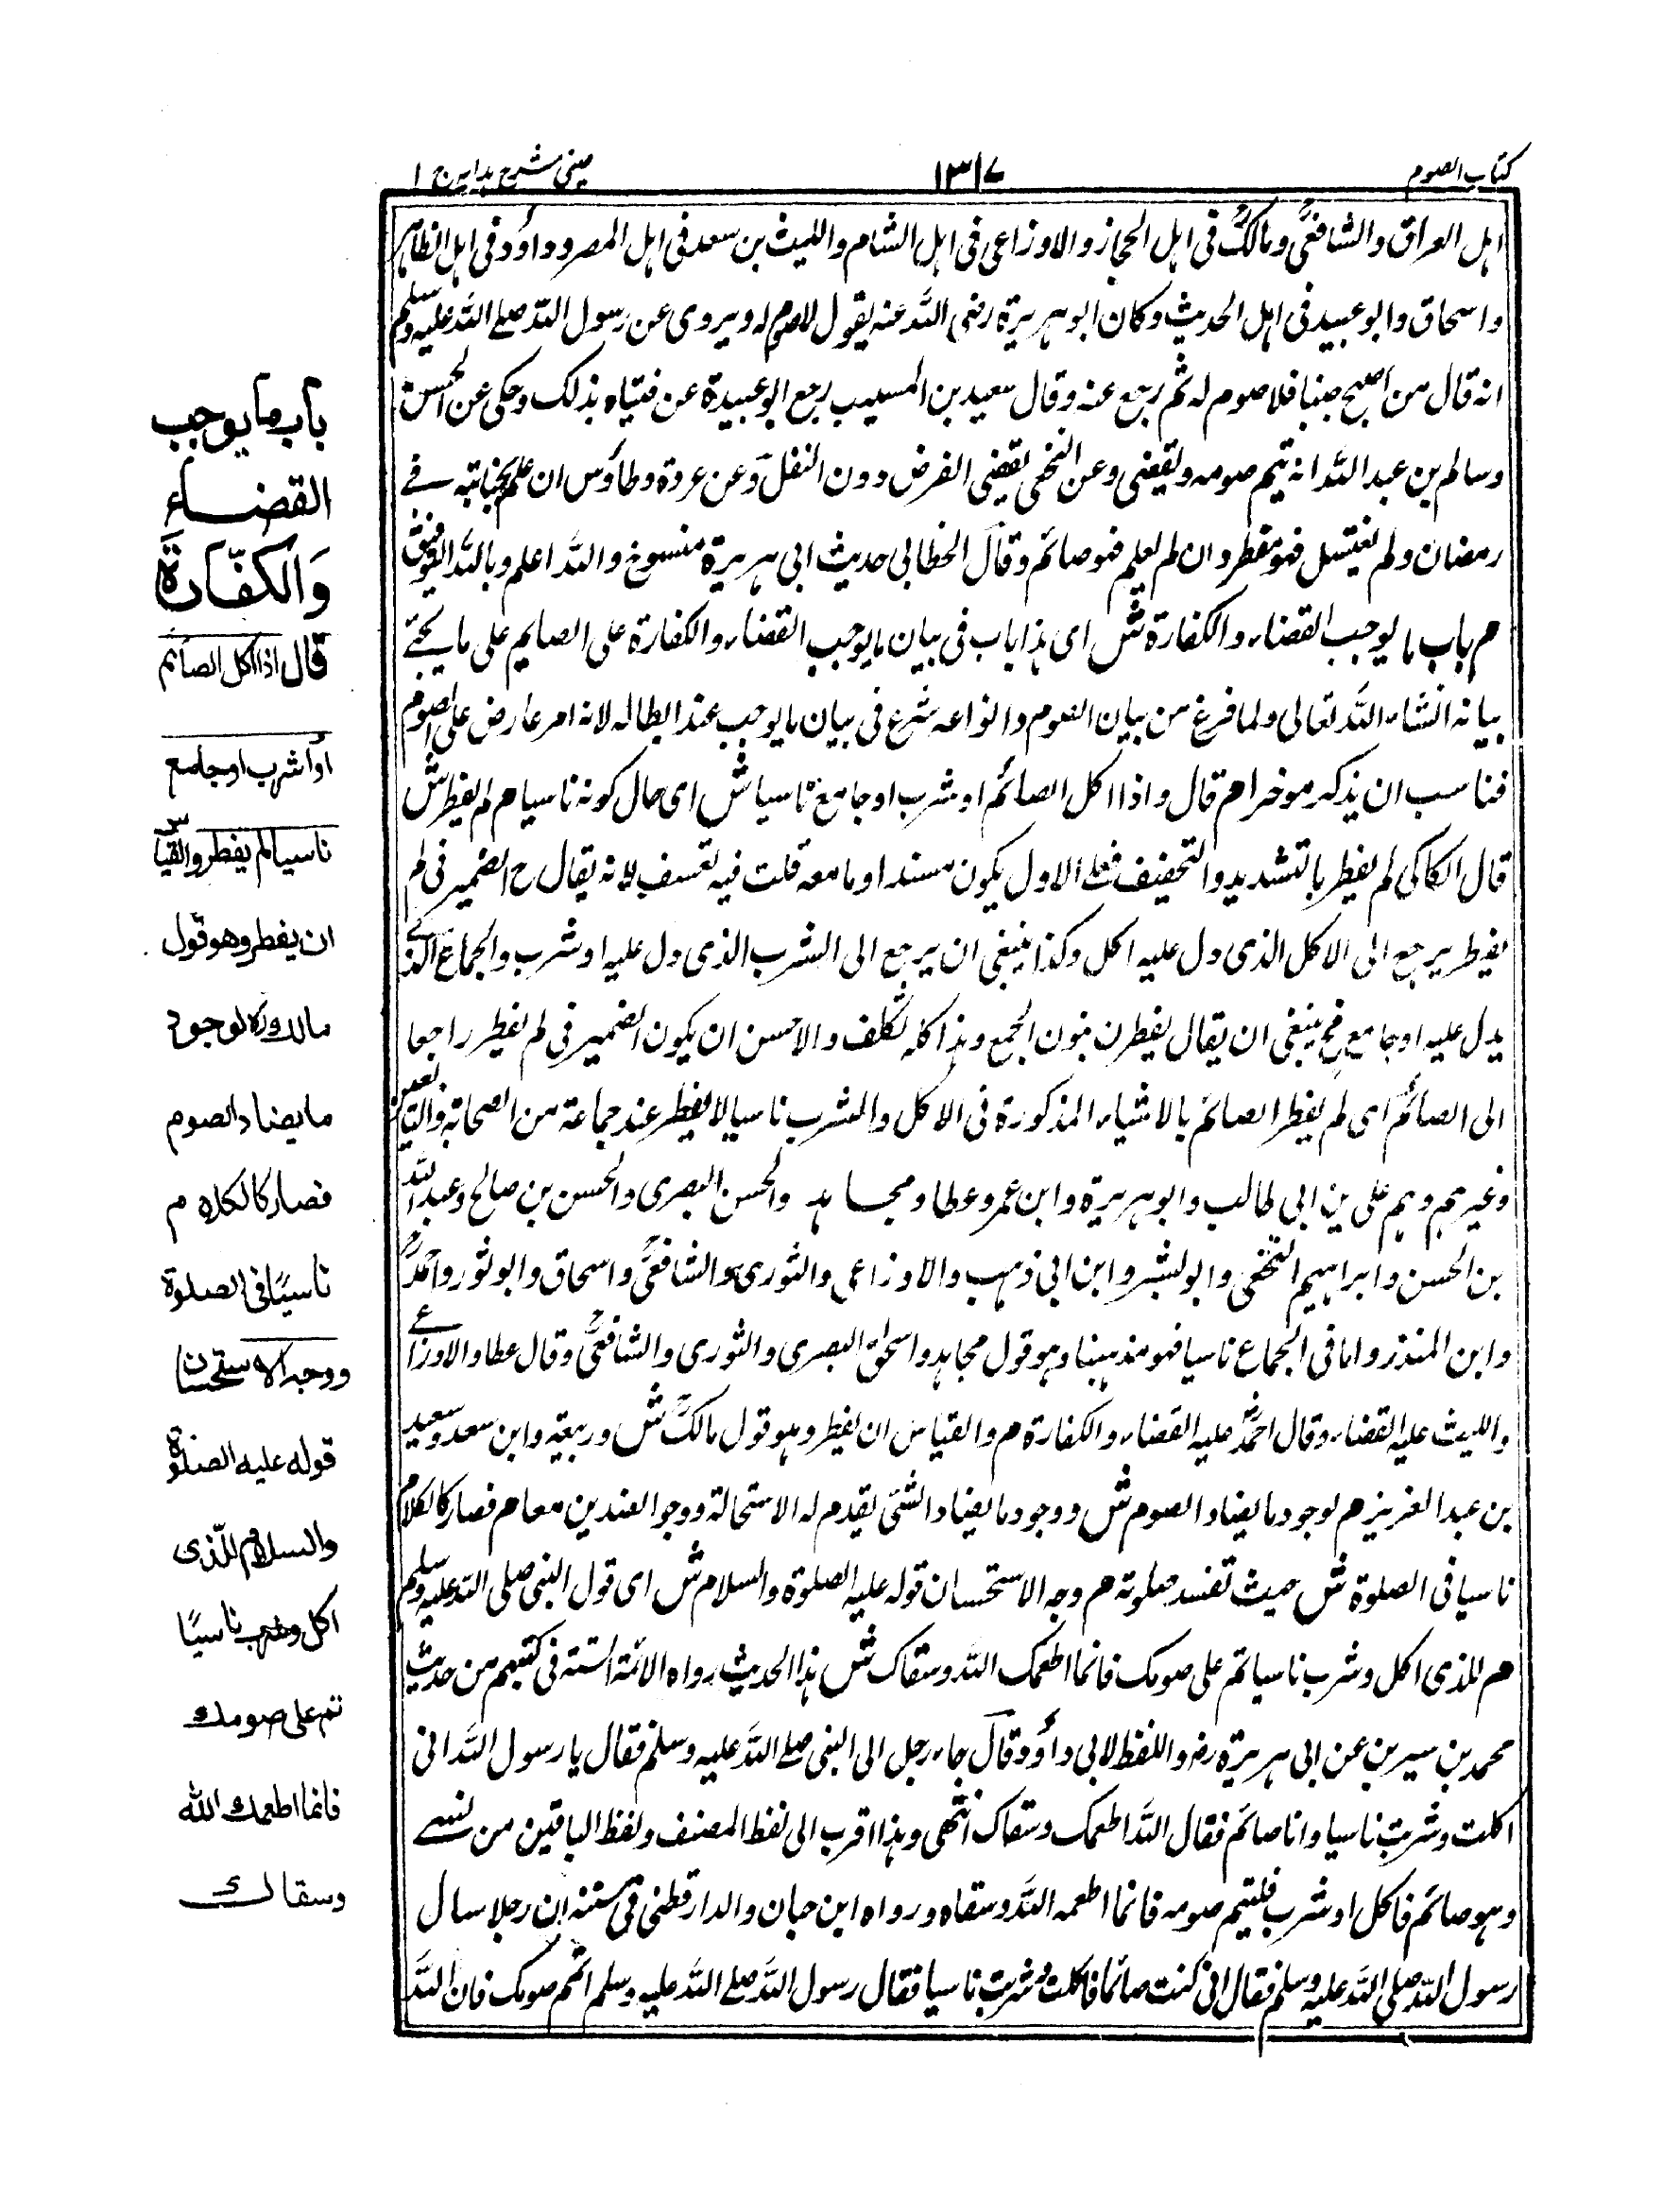 كتاب الصوم
١٣١٧
عينى شرح هدايه ج ١
اهل العراق والشافعىؒ ومالكؒ فى اهل الحجاز والاوزاعى فى اهل الشام والليث بن سعد فى اهل المصر وداؤد فى اهل الظاهر
واسحاق وابو عبيد فى اهل الحديث وكان ابو هريرة رضى الله عنه يقول لا صوم له ويروى عن رسول الله صلے الله عليه وسلم
انه قال من اصبح جنبا فلا صوم له ثم رجع عنه وقال سعيد بن المسيب رجع ابو عبيدة عن فتياه بذلك وحكى عن الحسن
وسالم بن عبد الله انه يتيم صومه ويقضى وعن النخعى يقضى الفرض دون النفل وعن عروة وطاؤس ان علم بجنابته فے
رمضان ولم يغتسل فهو مفطر وان لم يعلم فهو صائم وقال الخطابى حديث ابى هريرة منسوخ والله اعلم وبالله التوفيق
م باب ما يوجب القضاء والكفارة ش اى هذا باب فى بيان ما يوجب القضاء والكفارة على الصايم على ما يجئے
بيانه انشاء الله تعالى ولما فرغ من بيان الصوم وانواعه شرع فى بيان ما يوجب عند ابطاله لانه امر عارض على الصوم
فناسب ان يذكر موخرا م قال واذا اكل الصائم او شرب او جامع ناسيا ش اى حال كونه ناسيا م لم يفطر ش
قال الكاكى لم يفطر بالتشديد والتخفيف فعلے الاول يكون مسندا وما معه قلت فيه تعسف لانه يقال ح الضمير فى لم
يفطر يرجع الى الاكل الذى دل عليه اكل وكذا ينبغى ان يرجع الى الشرب الذى دل عليه او شرب والجماع الذے
يدل عليه او جامع فح ينبغى ان يقال يفطرن بنون الجمع وهذا كله تكلف والاحسن ان يكون الضمير فى لم يفطر راجعا
الى الصائم اى لم يفطر الصائم بالاشياء المذكورة فى الاكل والشرب ناسيا لا يفطر عند جماعة من الصحابة والتابعين
وغيرهم وهم على بن ابى طالب وابو هريرة وابن عمر وعطا ومجاهد والحسن البصرى والحسن بن صالح وعبد الله
بن الحسن وابراهيم النخعى وابو بشر وابن ابى ذهب والاوزاعى والثورى والشافعىؒ واسحاق وابو ثور واحمدؒ
وابن المنذر واما فى الجماع ناسيا فهو مذهبنا وهو قول مجاهد واسحٰق البصرى والثورى والشافعىؒ وقال عطا والاوزاعے
والليث عليه القضاء وقال احمدؒ عليه القضاء والكفارة م والقياس ان يفطر وهو قول مالكؒ ش وربيعة وابن سعد وسعيد
بن عبد العزيز م لوجود ما يضاد الصوم ش ووجود ما يضاد الشئ يقدم له الاستحالة ووجوا لضدين معا م فصار كالكلام
ناسيا فى الصلوة ش حيث تفسد صلوته م وجه الاستحسان قوله عليه الصلوة والسلام ش اى قول النبى صلى الله عليه وسلم
م للذى اكل وشرب ناسيا تم على صومك فانما اطعمك الله وسقاك ش هذا الحديث رواه الائمة الستة فى كتبهم من حديث
محمد بن سيرين عن ابى هريرة رض واللفظ لابى داؤد وقال جاء رجل الى النبى صلے الله عليه وسلم فقال يا رسول الله انى
اكلت وشربت ناسيا وانا صائم فقال الله اطعمك وسقاك انتهى وهذا اقرب الى لفظ المصنف ولفظ الباقين من نسے
وهو صائم فاكل او شرب فليتم صومه فانما اطعمه الله وسقاه ورواه ابن حبان والدارقطنى فى سننه ان رجلا سال
رسول الله صلى الله عليه وسلم فقال انى كنت صائما فاكلت وشربت ناسيا فقال رسول الله صلے الله عليه وسلم اتم صومك فان الله
باب ما يوجب
القضاء
وَالكفّارة
قال اذا اكل الصائم
او شرب او جامع
ناسيا لم يفطر والقياس
ان يفطر وهو قول
مالكؒ لوجود
ما يضاد الصوم
فصار كالكلام
ناسيًا فى الصلوة
ووجه الاستحسان
قوله عليه الصلوة
والسلام للّذى
اكل وشرب ناسيًا
تم على صومك
فانما اطعمك الله
وسقاك